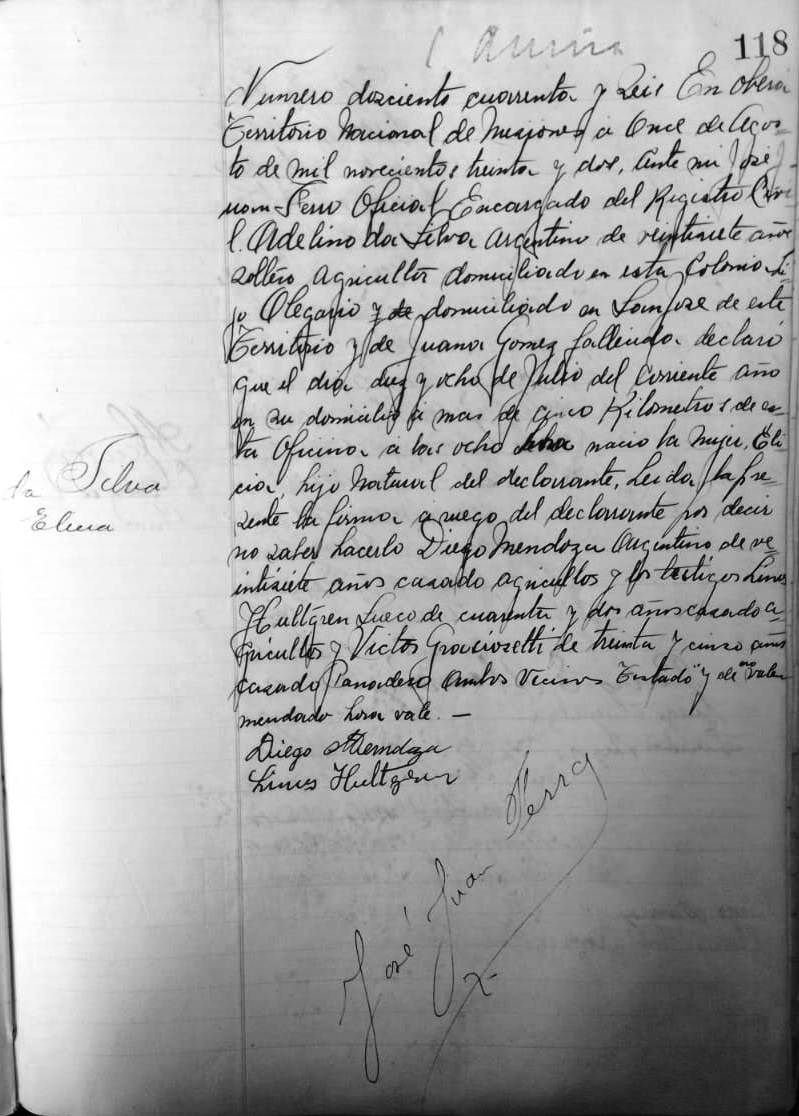 118
Numero dosciento cuarrenta y Seis En Obera
Territorio Nacional de Misiones a Once de Agos-
to de mil novecientos treinta y dos, ante mi José J-
uan Ferro Oficial Encargado del Registro Civi-
l. Adelino da Silva Argentino de veintisiete años
soltero agricultor domiciliado en esta Colonia hi-
jo Olegario y de domiciliado en San Jose de este
Territorio y de Juana Gomez fallecida declaró
que el dia diez y ocho de Julio del corriente año
en su domicilio a mas de cinco Kilometros de es-
ta Oficina a las ocho hora nacio la mujer, Eli-
cia, hijo natural del declarante, Leida la pre-
sente la firma a ruego del declarante por decir
no saber hacerlo Diego Mendoza Argentino de ve-
intisiete años casado agricultor y los testigos Linus
Hultgren Sueco de cuarenta y dos años casado a-
gricultor y Victor de treinta y cinco años
casado Panadero ambos vecinos Testado "y de" no vale
mendado hora vale. —
da Silva
Diego Mendoza
Linus Hultgren
José Juan Ferro